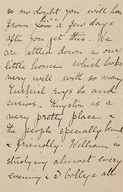 so no doubt you will hear
from him a few days
after you get this. We
are settled down in our
little home which looks
very well with so many
Turkish rugs &c and
curios. Kingston is a
very pretty place &
the people specially kind
& friendly. William is
studying almost every
evening, & College all